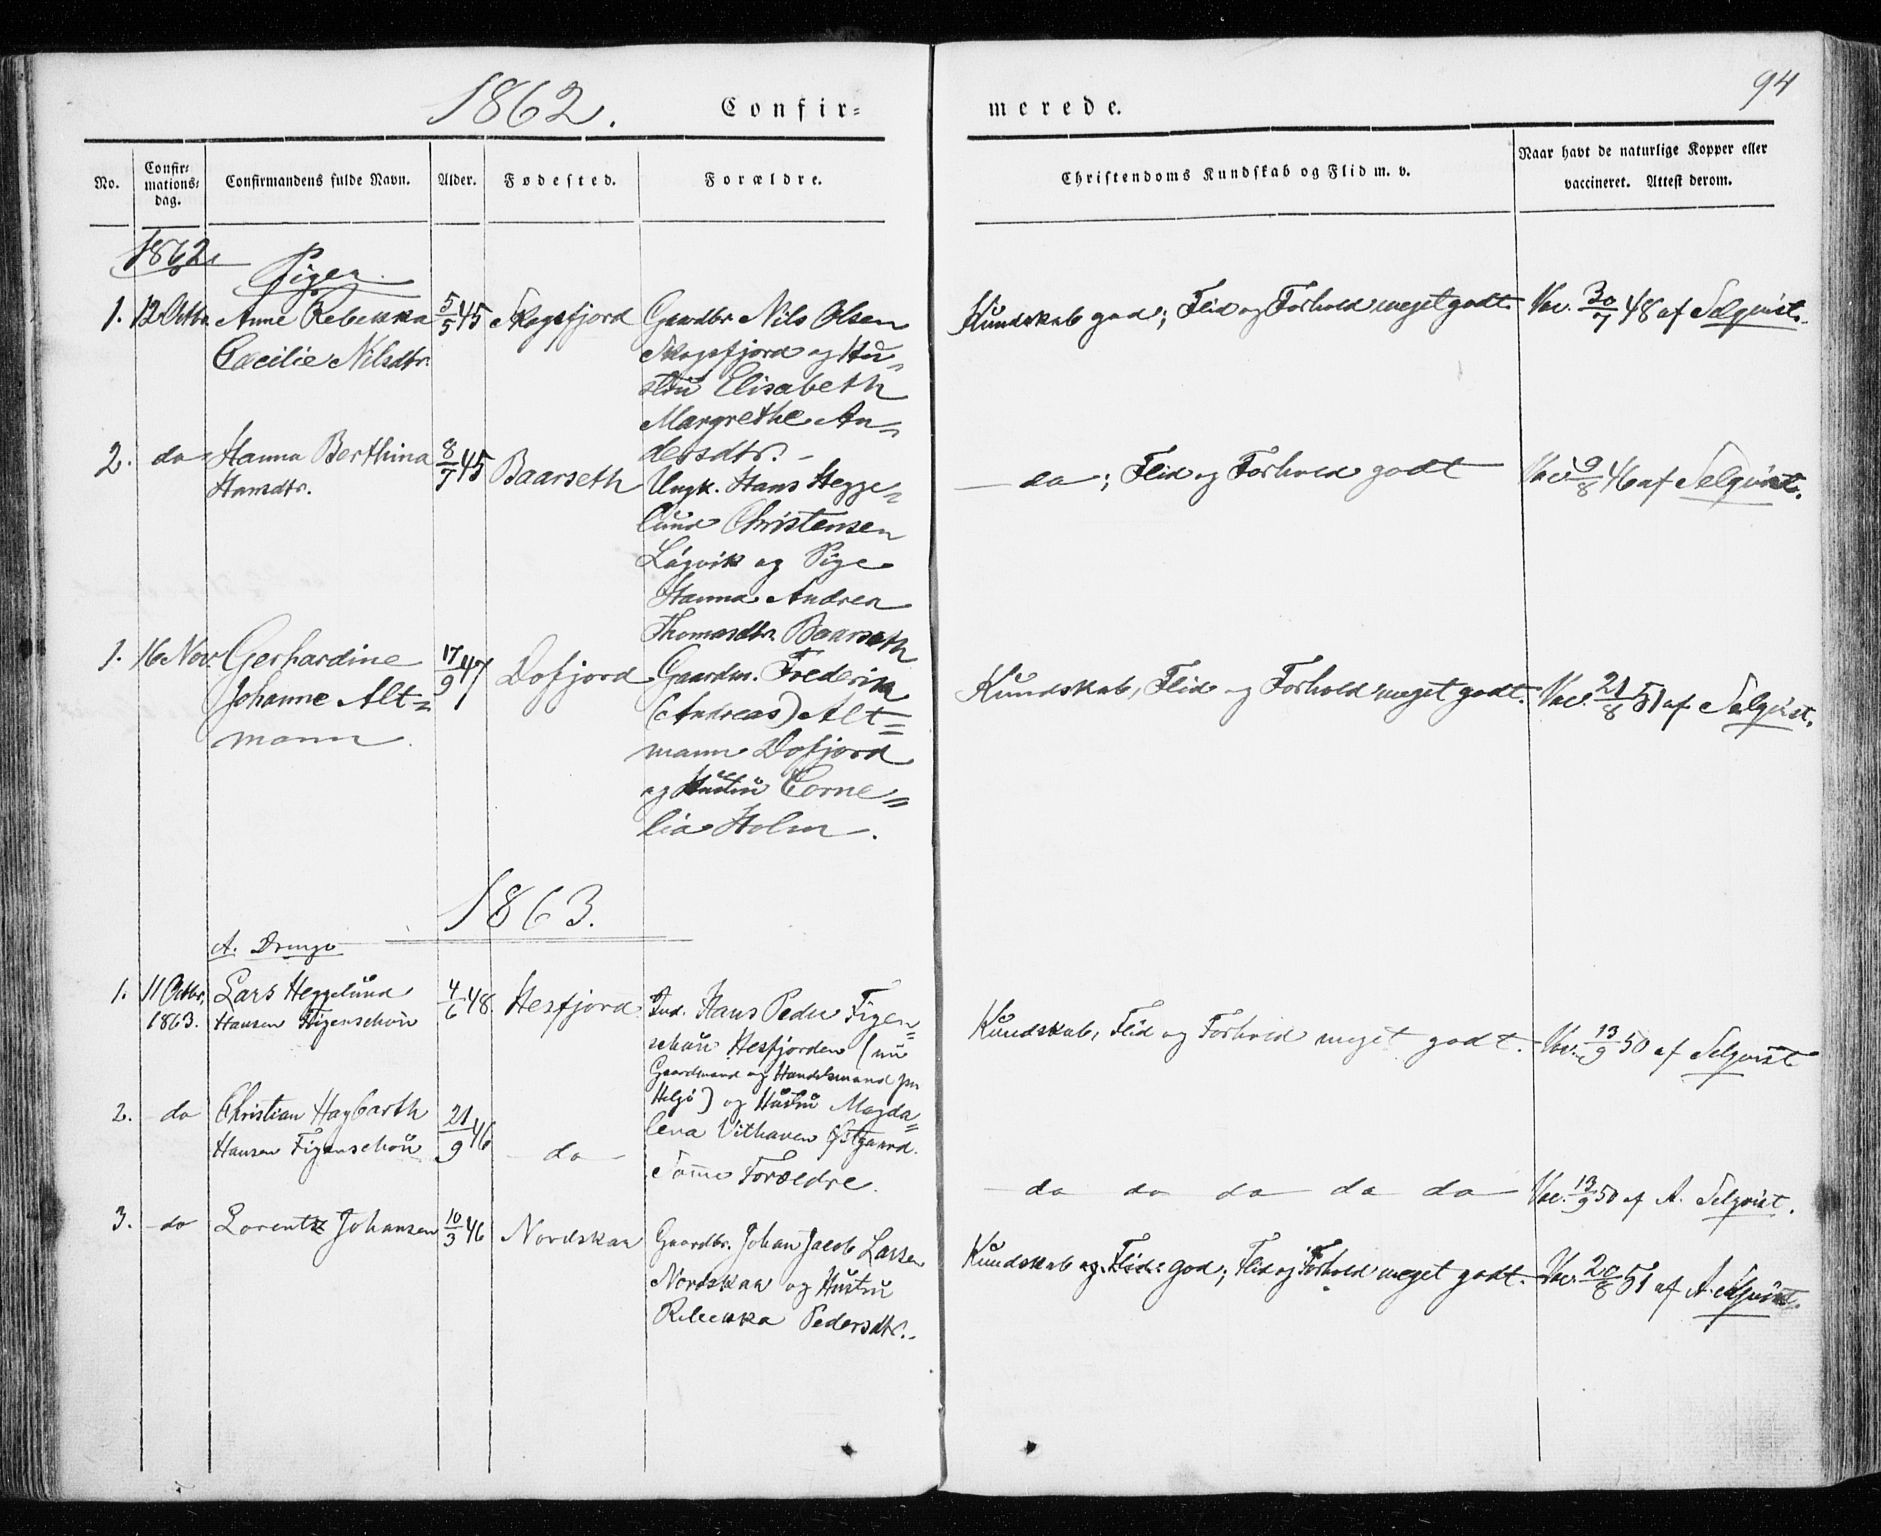 1862. Confir= merede. 94
No. Confir= mations= dag. Confirmandens fulde Navn. Alder. Fødested. Forældre. Christendoms Kundskab og Flid m. v. Naar havt de naturlige Kopper eller vaccineret. Attest derom.
1862.
Piger
1. 12 Octbr. Anne Rebekka 5/5 45 Skogsfjord Gaardbr. Nils Olsen Kundskab god; Flid og Forhold meget godt. Vac. 30/7 48 af Selqvist.
Cæcilie Nilsdtr. Skogsfjord og Hu=
stru Elisabeth
Margrethe An=
dersdtr. -
2. do Hanna Berthina 8/7 45 Baarseth Ungk. Hans Hegge= - do; Flid og Forhold godt Vac. 9/8 46 af Selqvist.
Hansdtr. lund Christensen
Lögvik og Pige
Hanna Andrea
Thomasdtr. Baarseth
1. 16 Nov. Gerhardine 17/9 47 Dofjord Gaardm. Frederik Kundskab, Flid og Forhold meget godt. Vac. 21/8 51 af Selqvist.
Johanne Alt= (Andreas) Alt=
mann. mann Dofjord
og Hustru Corne=
lia Holm.
1863.
A. Drenge
1. 11 Octbr. Lars Heggelund 4/6 48. Hesfjord Ind. Hans Peder Figen= Kundskab, Flid og Forhold meget godt. Vac. 13/9 50 af Selqvist
1863. Hansen Figenschou schou Hesfjorden (nu
Gaardmand og Handelsmand paa
Helgö) og Hustru Magda=
2. do Christian Hagbarth 21/9 46 - do - lena Vithaven Östgaard.
Hansen Figenschou Samme Forældre. - do do do do do - Vac. 13/9 50 af A. Selqvist.
3. do Lorentz Johansen 10/3 46 Nordskar Gaardbr. Johan Jacob Larsen Kundskab og Flid: god; Flid og Forhold meget godt. Vac. 20/8 51 af A. Selqvist.
Nordskar og Hustru
Rebekka Pedersdtr.